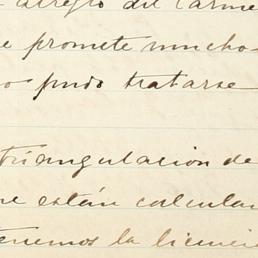 arreglo del Carme
e promete mucho
o pudo tratarse
triangulacion de
ne están calcula
tenemos la licenci